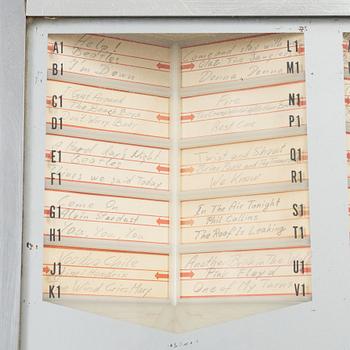 A1 Help!
Beatles
B1 I'm Down
C1 I Get Around
The Beach Boys
D1 Don't Worry Baby
E1 A hard day's Night
Beatles
F1 Things we said Today
G1 Come On
Alvin Stardust
H1 You, You, You
J1 Voodoo Chile
Jimi Hendrix
K1 The Wind Cries Mary
Come and stay with L1
Donna, Donna M1
Fire N1
Best P1
Twist and Shout Q1
Brian Poole and the
We Know R1
In The Air Tonight S1
Phil Collins
The Roof Is Leaking T1
Another Brick in the U1
Pink Floyd
One of My Turns V1